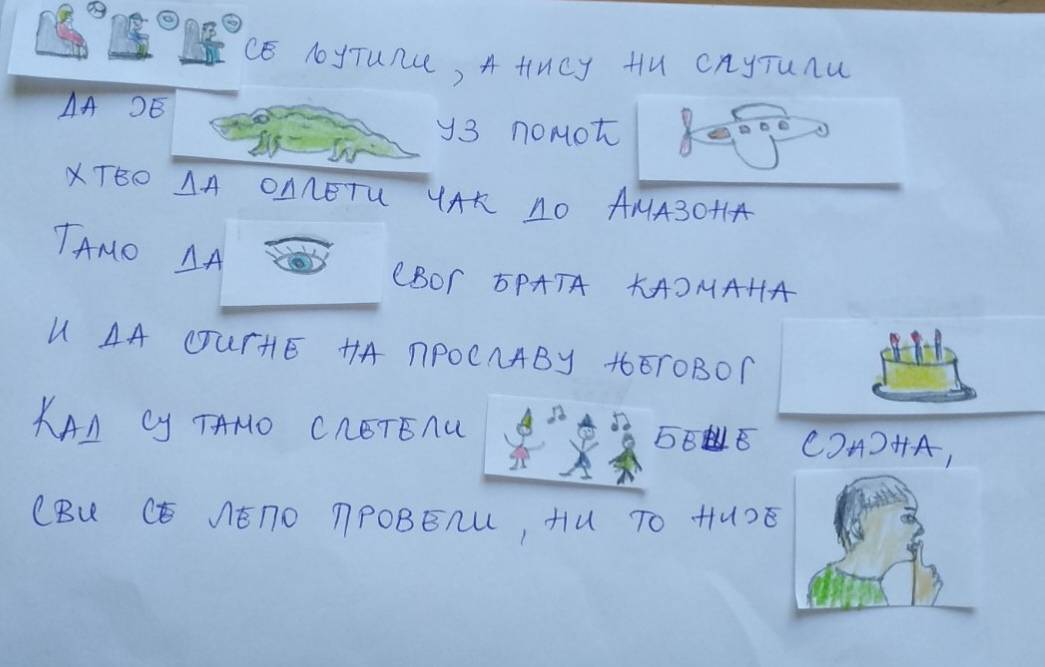 СЕ ЉУТИЛИ, А НИСУ НИ СЛУТИЛИ
ДА ЈЕ УЗ ПОМОЋ
ХТЕО ДА ОДЛЕТИ ЧАК ДО АМАЗОНА
ТАМО ДА СВОГ БРАТА КАЈМАНА
И ДА СТИГНЕ НА ПРОСЛАВУ ЊЕГОВОГ
КАД СУ ТАМО СЛЕТЕЛИ БЕШЕ СЈАЈНА,
СВИ СЕ ЛЕПО ПРОВЕЛИ, НИ ТО НИЈЕ